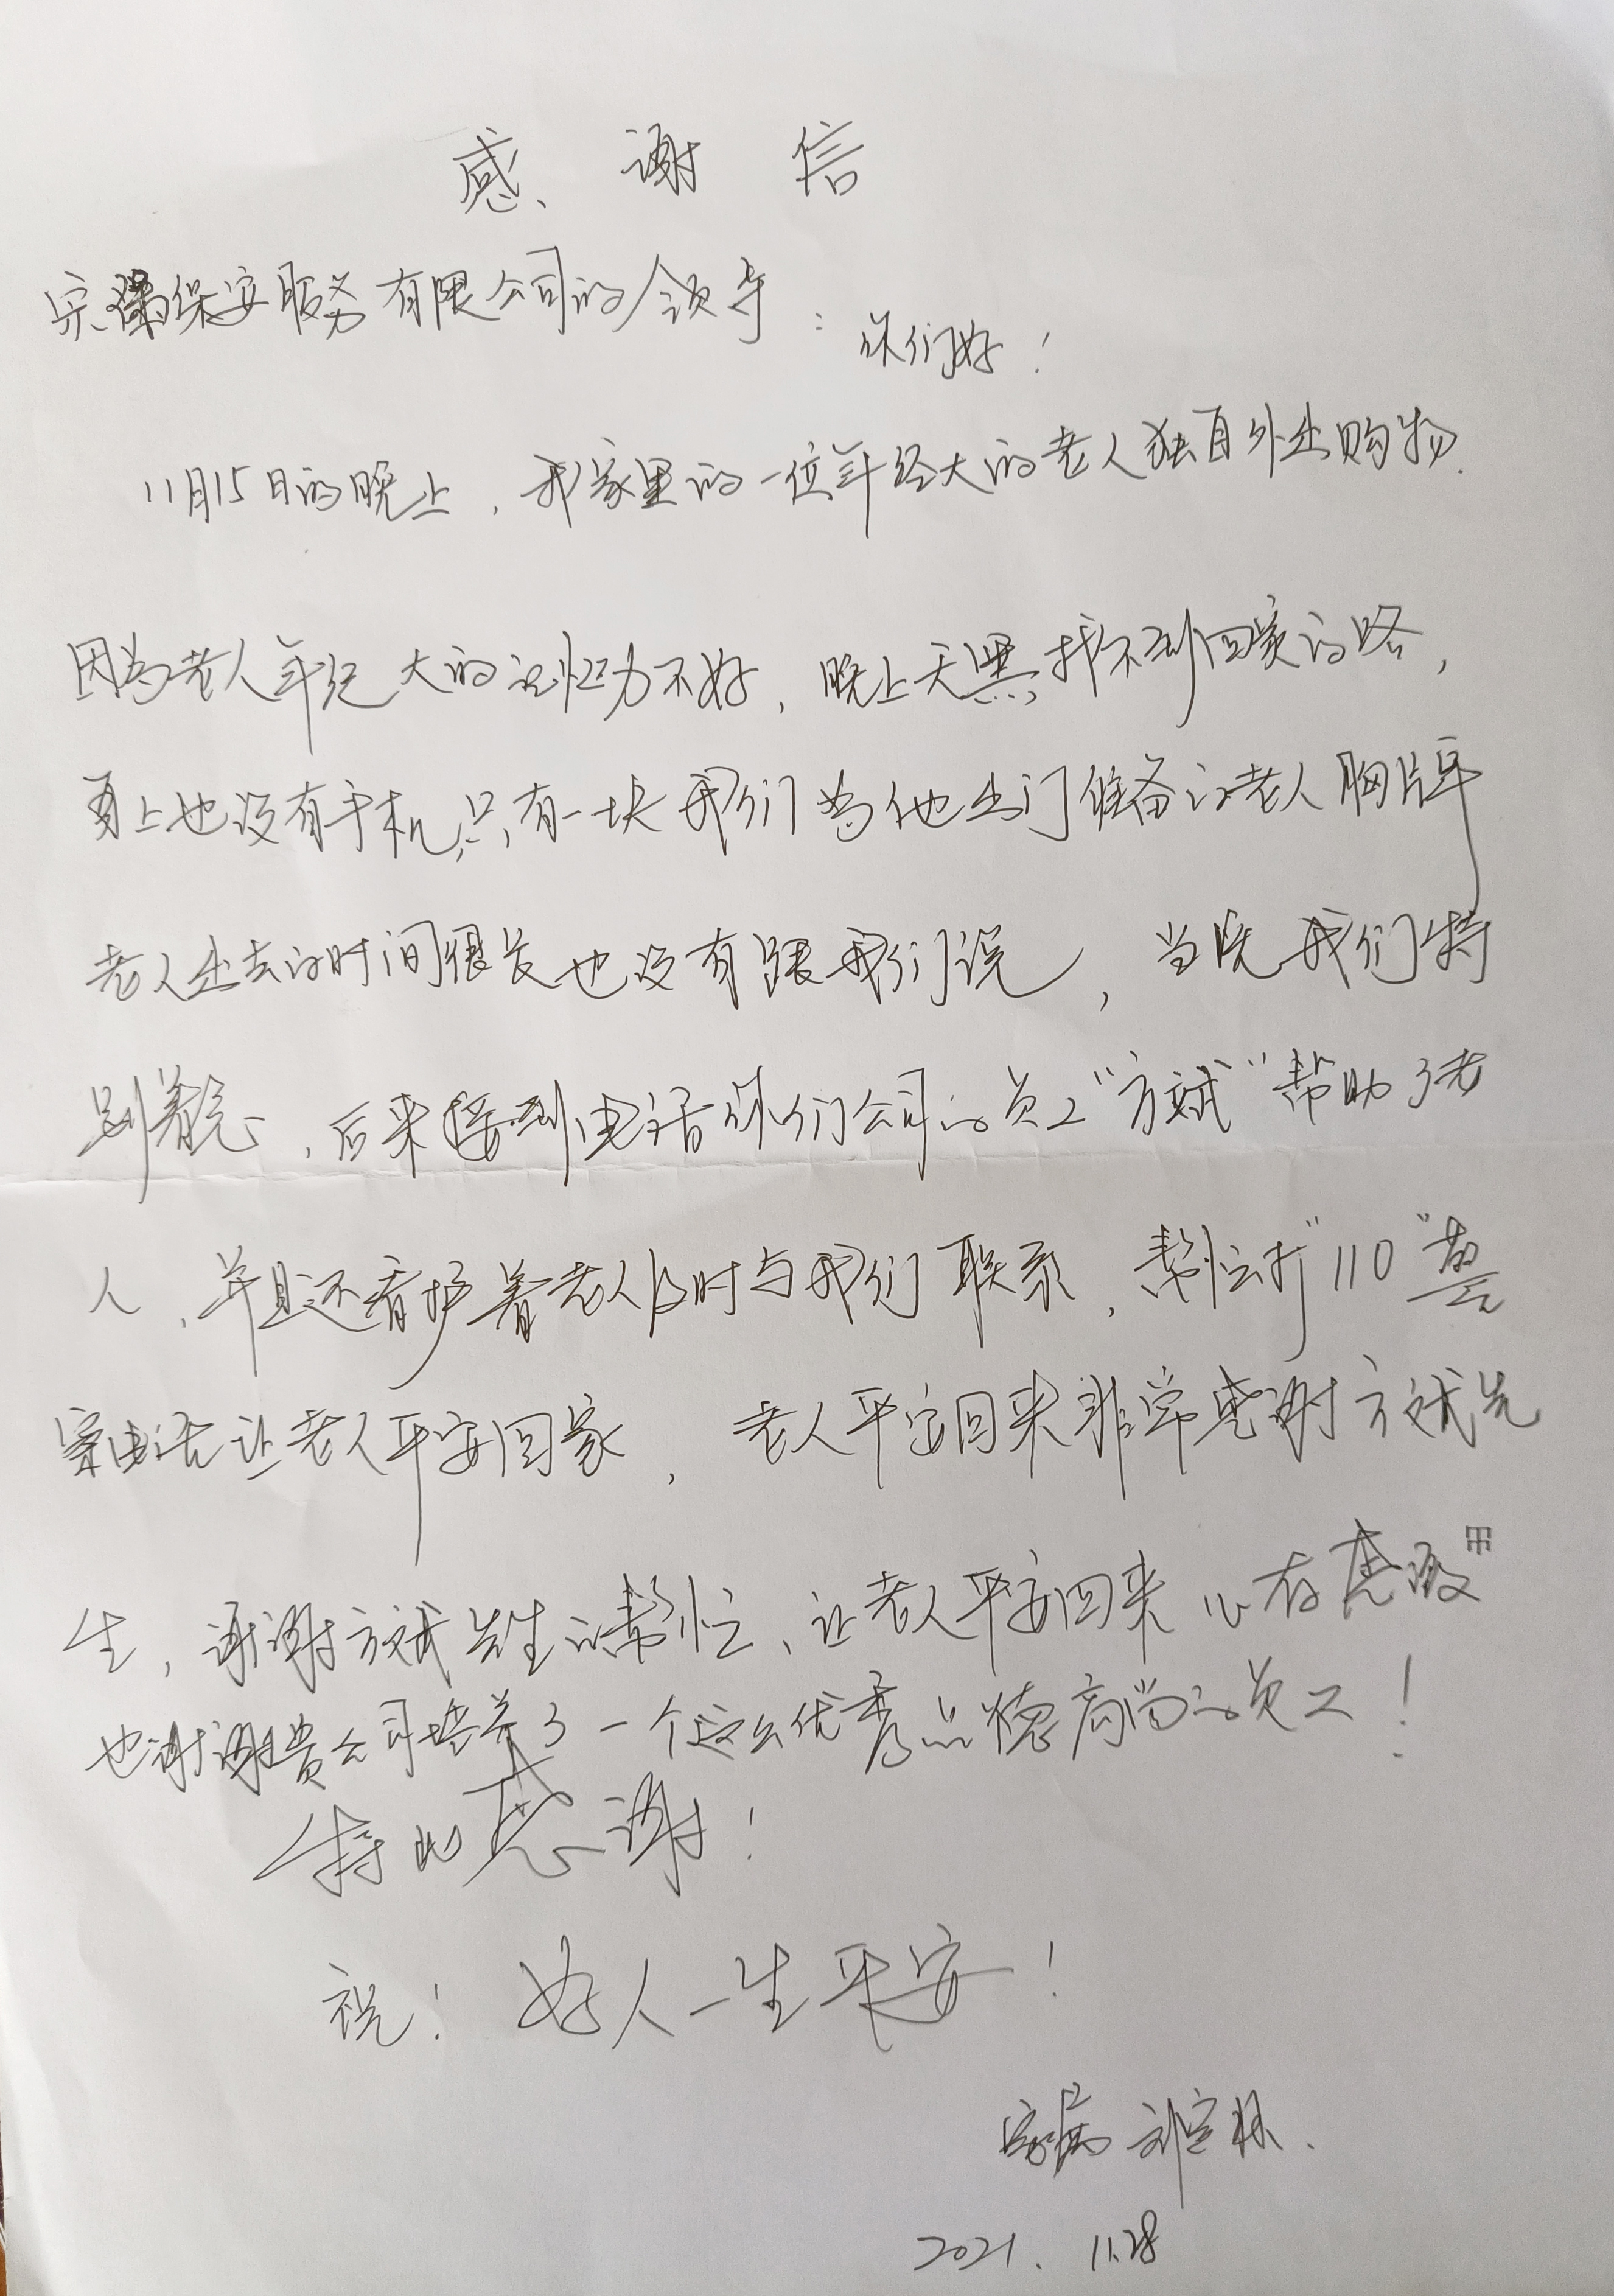 感谢信
宗保安服务有限公司的领导：你们好！
11月15日的晚上，我家里的一位年经大的老人独自外出购物.
因为老人年纪大的记忆力不好，晚上天黑找不到回家的路，
身上也没有手机，只有一块我们为他出门准备的老人胸牌
老人出去的时间很长也没有跟我们说，当晚我们特
别着急，后来接到电话你们公司的员工“方斌”帮助了老
人，并且还看护着老人及时与我们联系，帮忙打“110”警
察电话让老人平安回家，老人平安回来非常感谢方斌先
生，谢谢方斌先生的帮忙、让老人平安回来心存感激
也谢谢贵公司培养了一个这么优秀品德高尚的员工！
特此感谢！
祝！好人一生平安！
家属 刘宝林.
2021.11.28